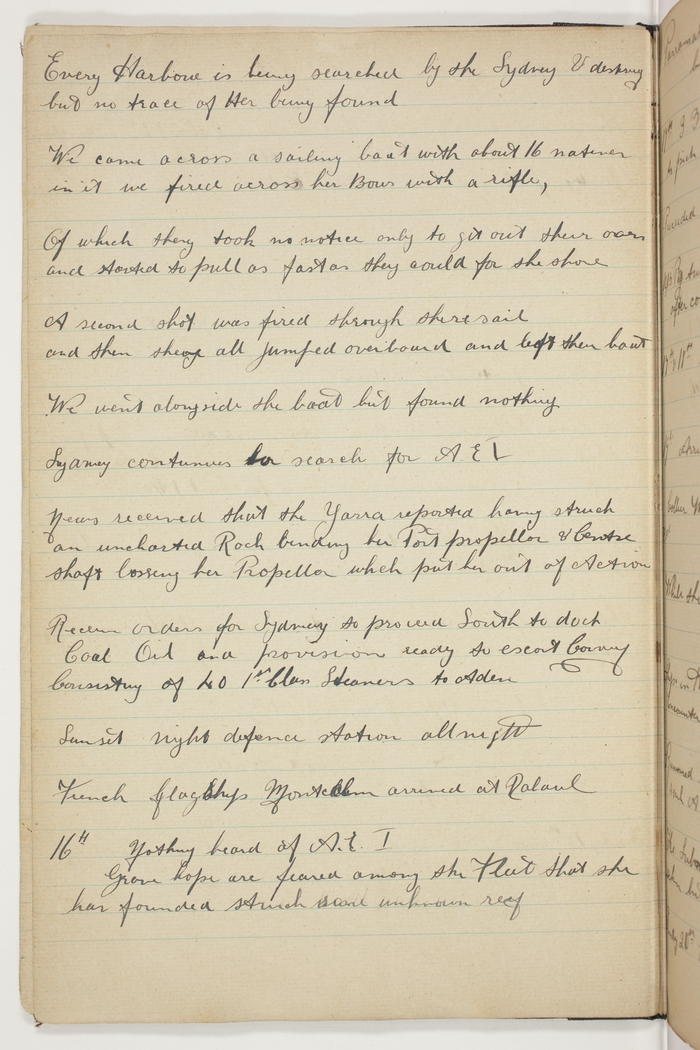 Every Harbour is being searched by the Sydney & destroy
but no trace of Her being found
We came across a sailing baat with about 16 natives
in it we fired across her Bows with a rifle,
Of which they took no notice only to git out their oars
and started to pull as fast as they could for the shore
A second shot was fired through there sail
and then they all jumped overboard and left then baat
We went alongside the baat but found nothing
Sydney continues to search for A E 1
News received that the Yarra reported having struck
an uncharted Rock bending her Port propellor & Centre
shaft lossing her Propellor which put her out of Action
Receive orders for Sydney to proceed South to dock
Coal Oil and provision ready to escort Convoy
Consisting of 40 1st Class Steamers to Aden
Sunset night defence station all night
French flagships Montcalm arrived at Rabaul
16th Nothing heard of A.E. I
Grave hope are feared among the Fleet that she
has founded struck some unknown reef